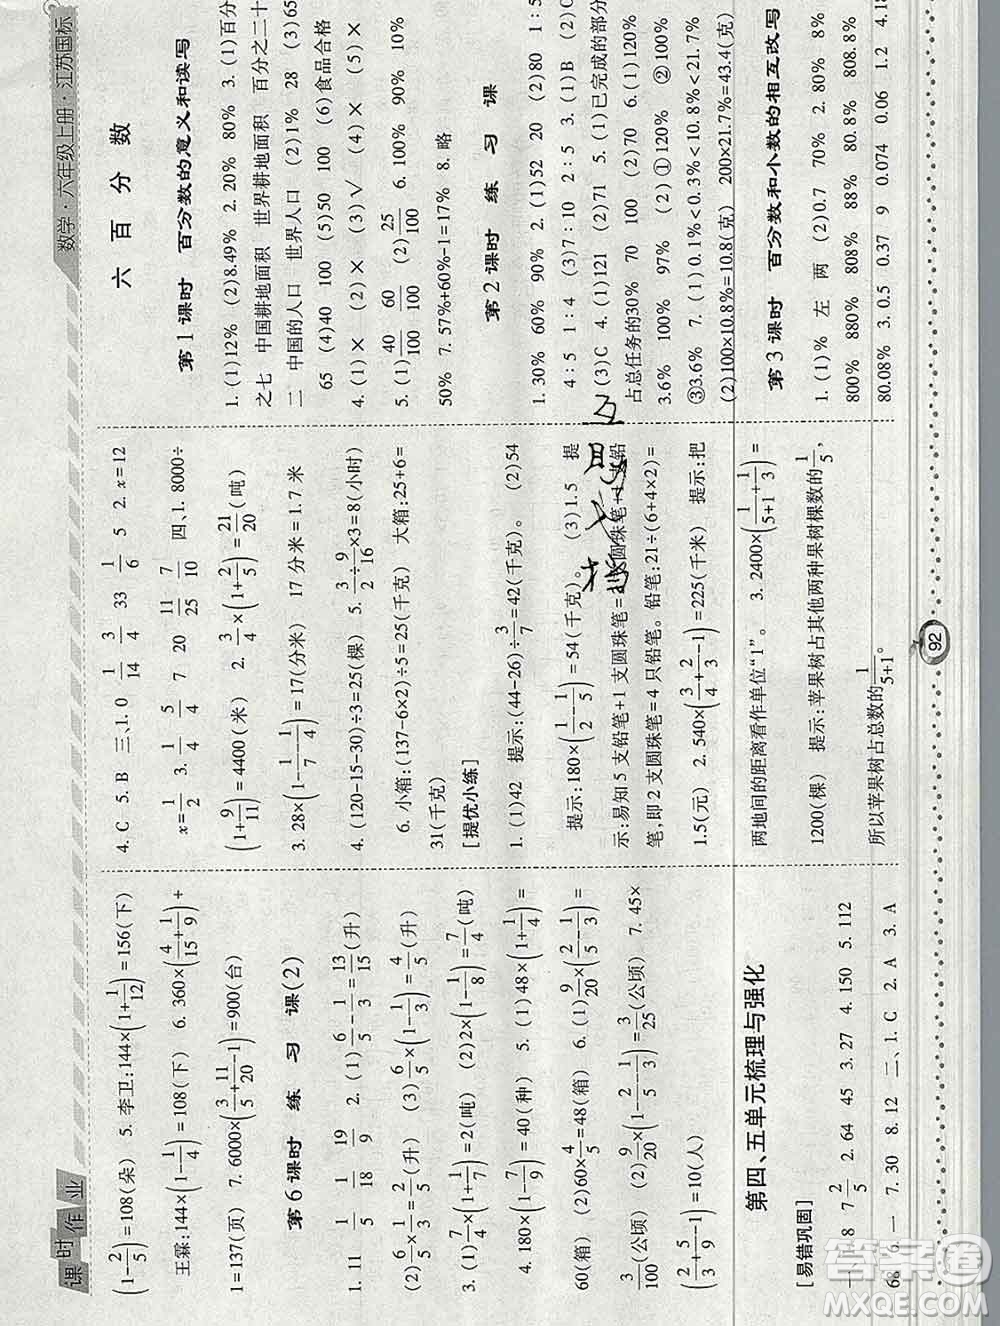 课时作业
(1-2/5)=108(朵) 5. 李卫:144×(1+1/12)=156(下)
王霖:144×(1-1/4)=108(下) 6. 360×(4/15+1/9)+
1=137(页) 7. 6000×(3/5+11/20-1)=900(台)
第6课时 练 习 课(2)
1. 11 1/5 1/18 19/9 2. (1)6/5-1/3=13/15(升)
(2)6/5×2/3=4/5(升) (3)6/5×(1-1/3)=4/5(升)
3. (1)7/4×(1+1/7)=2(吨) (2)2×(1-1/8)=7/4(吨)
4. 180×(1-7/9)=40(种) 5. (1)48×(1+1/4)=
60(箱) (2)60×4/5=48(箱) 6. (1)9/20×(2/5-1/3)=
3/100(公顷) (2)9/20×(1-2/5-1/3)=3/25(公顷) 7. 45×
(2/3+5/9-1)=10(人)
第四、五单元梳理与强化
[易错巩固]
8 7 2/5 2. 64 45 3. 27 4. 150 5. 112
68 6. 一 7. 30 8. 12 二、1. C 2. A 3. A
4. C 5. B 三、1. 0 1/14 3/4 33 1/6 5 2. x=12
x=1/2 3. 1/4 5/4 7 20 11/25 7/10 四、1. 8000÷
(1+9/11)=4400(米) 2. 3/4×(1+2/5)=21/20(吨)
3. 28×(1-1/7-1/4)=17(分米) 17分米=1.7米
4. (120-15-30)÷3=25(棵) 5. 3/2÷9/16×3=8(小时)
6. 小箱:(137-6×2)÷5=25(千克) 大箱:25+6=
31(千克)
[提优小练]
1. (1)42 提示:(44-26)÷3/7=42(千克)。 (2)54
提示:180×(1/2-1/5)=54(千克)。 (3)1.5 提
示:易知5支铅笔+1支圆珠笔=
笔,即2支圆珠笔=4只铅笔。铅笔:21÷(6+4×2)=
1.5(元) 2. 540×(3/4+2/3-1)=225(千米) 提示:把
两地间的距离看作单位“1”。 3. 2400×(1/5+1+1/3)=
1200(棵) 提示:苹果树占其他两种果树棵数的1/5,
所以苹果树占总数的1/5+1。
数学·六年级上册·江苏国标
六 百 分 数
第1课时 百分数的意义和读写
1. (1)12% (2)8.49% 2. 20% 80% 3. (1)百分
之七 中国耕地面积 世界耕地面积 百分之二十
二 中国的人口 世界人口 (2)1% 28 (3)65
65 (4)40 100 (5)50 100 (6)食品合格
4. (1)× (2)× (3)√ (4)× (5)×
5. (1)40/100 60/100 (2)25/100 6. 100% 90% 10%
50% 7. 57%+60%-1=17% 8. 略
第2课时 练 习 课
1. 30% 60% 90% 2. (1)52 20 (2)80 1:5
4:5 1:4 (3)7:10 2:5 3. (1)B (2)C
(3)C 4. (1)121 (2)71 5. (1)已完成的部分
占总任务的30% 70 100 (2)70 6. (1)120%
3.6% 100% 97% (2)①120% ②100%
③3.6% 7. (1)0.1%<0.3%<10.8%<21.7%
(2)100×10.8%=10.8(克) 200×21.7%=43.4(克)
第3课时 百分数和小数的相互改写
1. (1)% 左 两 (2)0.7 70% 2. 80% 8%
800% 880% 808% 88% 80.8% 808.8%
80.08% 3. 0.5 0.37 9 0.074 0.06 1.2 4.18
92
答案圈
MXQE.COM